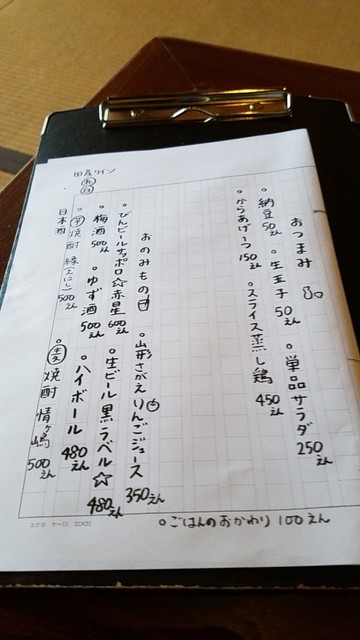 おつまみ
。納豆 50えん 。生玉子 50えん 。単品サラダ 250えん
。からあげ一つ 150えん 。スライス蒸し鶏 450えん
おのみもの
。びんビールサッポロ☆赤星 600えん 。山形さがえりんごジュース 350えん
。梅酒 500えん 。ゆず酒 500えん 。生ビール黒ラベル☆ 480えん
。芋焼酎 縁(えにし) 500えん 。ハイボール 480えん
日本酒 。麦焼酎 情ヶ嶋 500えん
国産ワイン
赤
白
。ごはんのおかわり 100えん
コクヨ ケー10 20×20